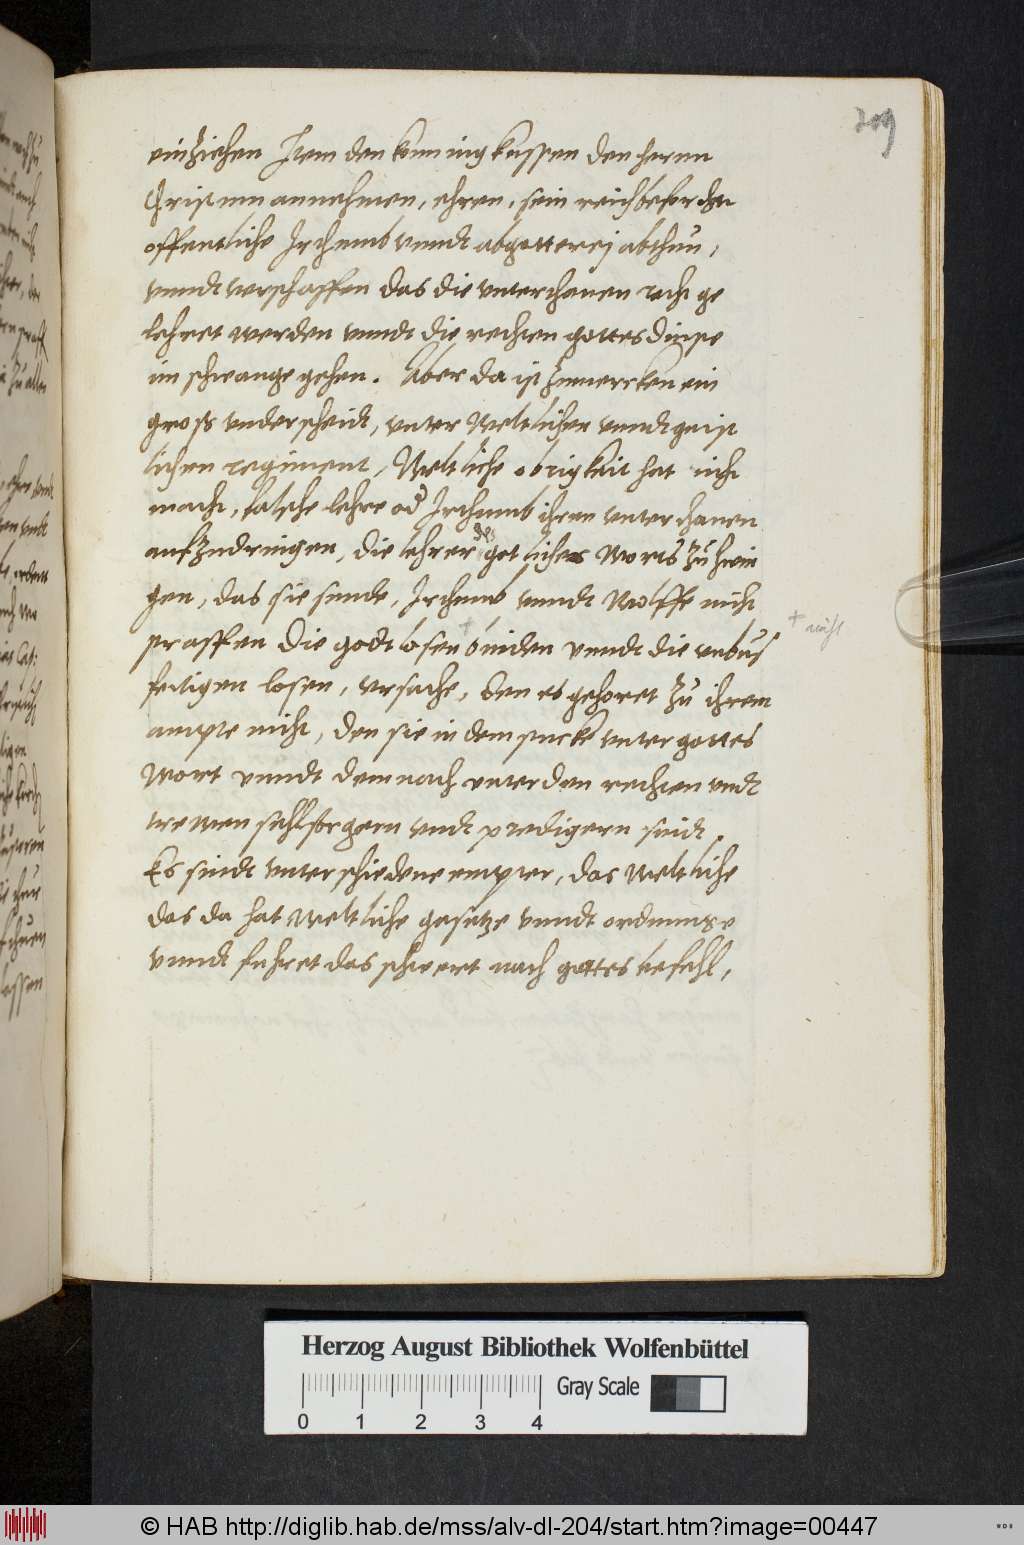 209
einziehen Item den konning kussen den hernn
Christum annehmen, ehren, sein reich befordern
offentliche Irthumb vnndt abgotterej abthun,
vnndt verschaffen das die vnterthanen recht ge
lehret werden vnndt die rechten gottes dinste
im schwange gehen. Aber da ist zumercken ein
gross vnderscheidt, vnter Weltlicher vnndt geist
lichen regiment, Weltliche obrigkait hat nicht
macht, falsche lehre od Irthumb ihren vnterthanen
aufzudringen, die lehrer des gotliches Worts zu zwin
gen, das sie sunde, Irthumb vnndt Wolffe nicht
straffen die godtlosen + binden vnndt die vnbus
fertigen losen, vrsache, den es gehoret zu ihrem
+ nicht
ampte nicht, den sie in dem stucke vnter gottes
Wort vnndt demnach vnter den rechten vndt
trewen sehlsorgern vndt predigern sindt.
Es sindt vnterschiedene empter, das Weltliche
das da hat Weltliche gesetze vnndt ordnunge
vnndt fuhret das schwert nach gottes befehl,
Herzog August Bibliothek Wolfenbüttel
Gray Scale
0 1 2 3 4
© HAB http://diglib.hab.de/mss/alv-dl-204/start.htm?image=00447